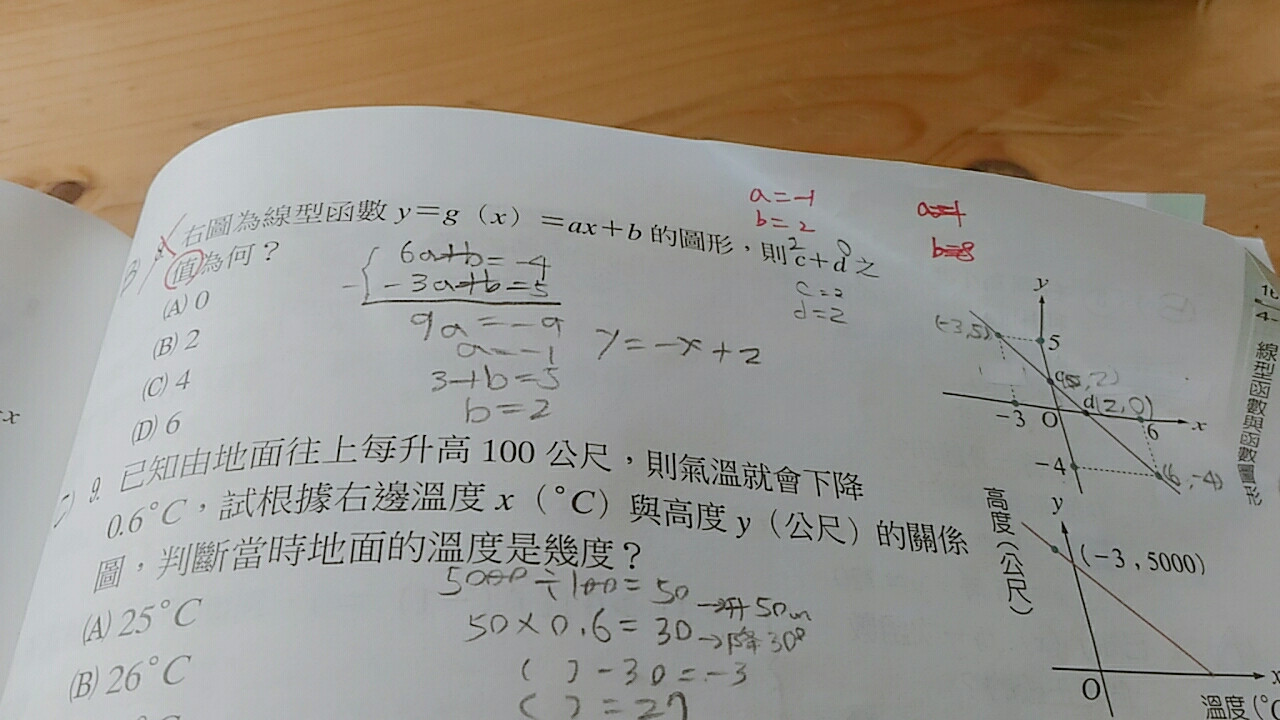 a=-1
b=2
右圖為線型函數 y=g（x）=ax+b 的圖形，則 c+d 之
值為何？
(A) 0
(B) 2
(C) 4
(D) 6
6a+b=-4
-3a+b=5
9a=-9
a=-1
3+b=5
b=2
y=-x+2
c=2
d=2
y
(-3,5)
5
d(2,0)
-3
O
6
x
-4
(6,-4)
9. 已知由地面往上每升高 100 公尺，則氣溫就會下降
0.6°C，試根據右邊溫度 x（°C）與高度 y（公尺）的關係
圖，判斷當時地面的溫度是幾度？
(A) 25°C
(B) 26°C
5000÷100=50
→升50
50×0.6=30→降30°
( )-30=-3
( )=27
y
高度(公尺)
(-3,5000)
O
x
溫度(°C
線型函數與函數圖形